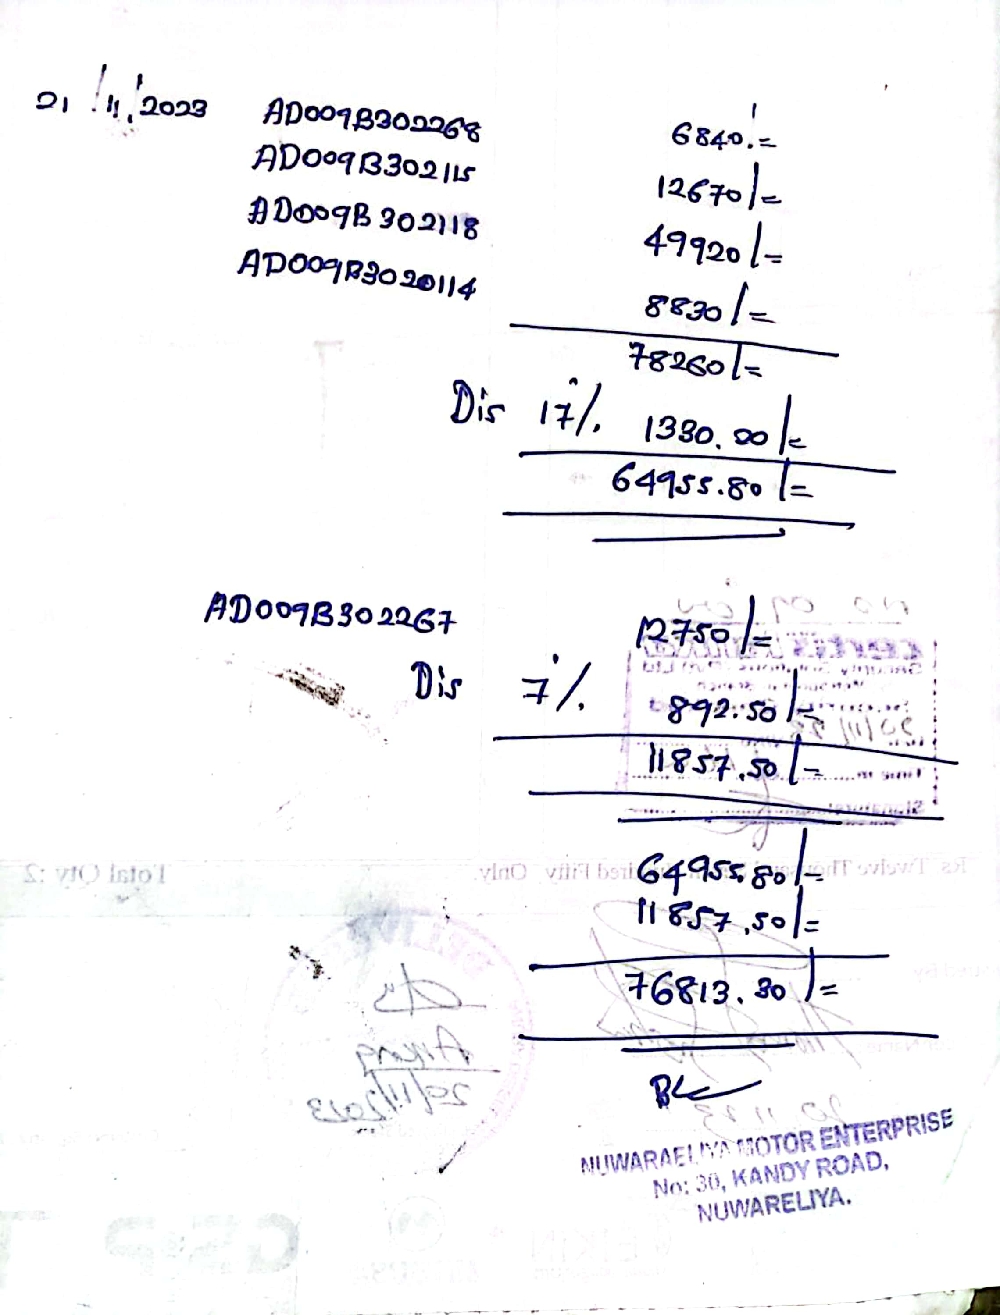 21/11/2023 AD009B302268 6840.=
AD009B302115 12670/=
AD009B302118 49920/=
AD009B3020114 8830/=
78260/=
Dis 17%. 1330.00/=
64955.80/=
AD009B302267 12750/=
Dis 7%. 892.50/=
11857.50/=
64955.80/=
11857.50/=
76813.30/=
NUWARAELIYA MOTOR ENTERPRISE
No: 30, KANDY ROAD,
NUWARELIYA.
Total Qty : 2
Rs Twelve Only.
20/11/2023